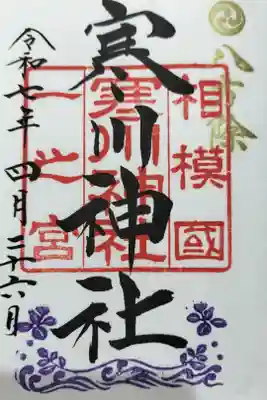 八方除
相模國
寒川神社
一之宮
寒川神社
令和七年 四月二十六日